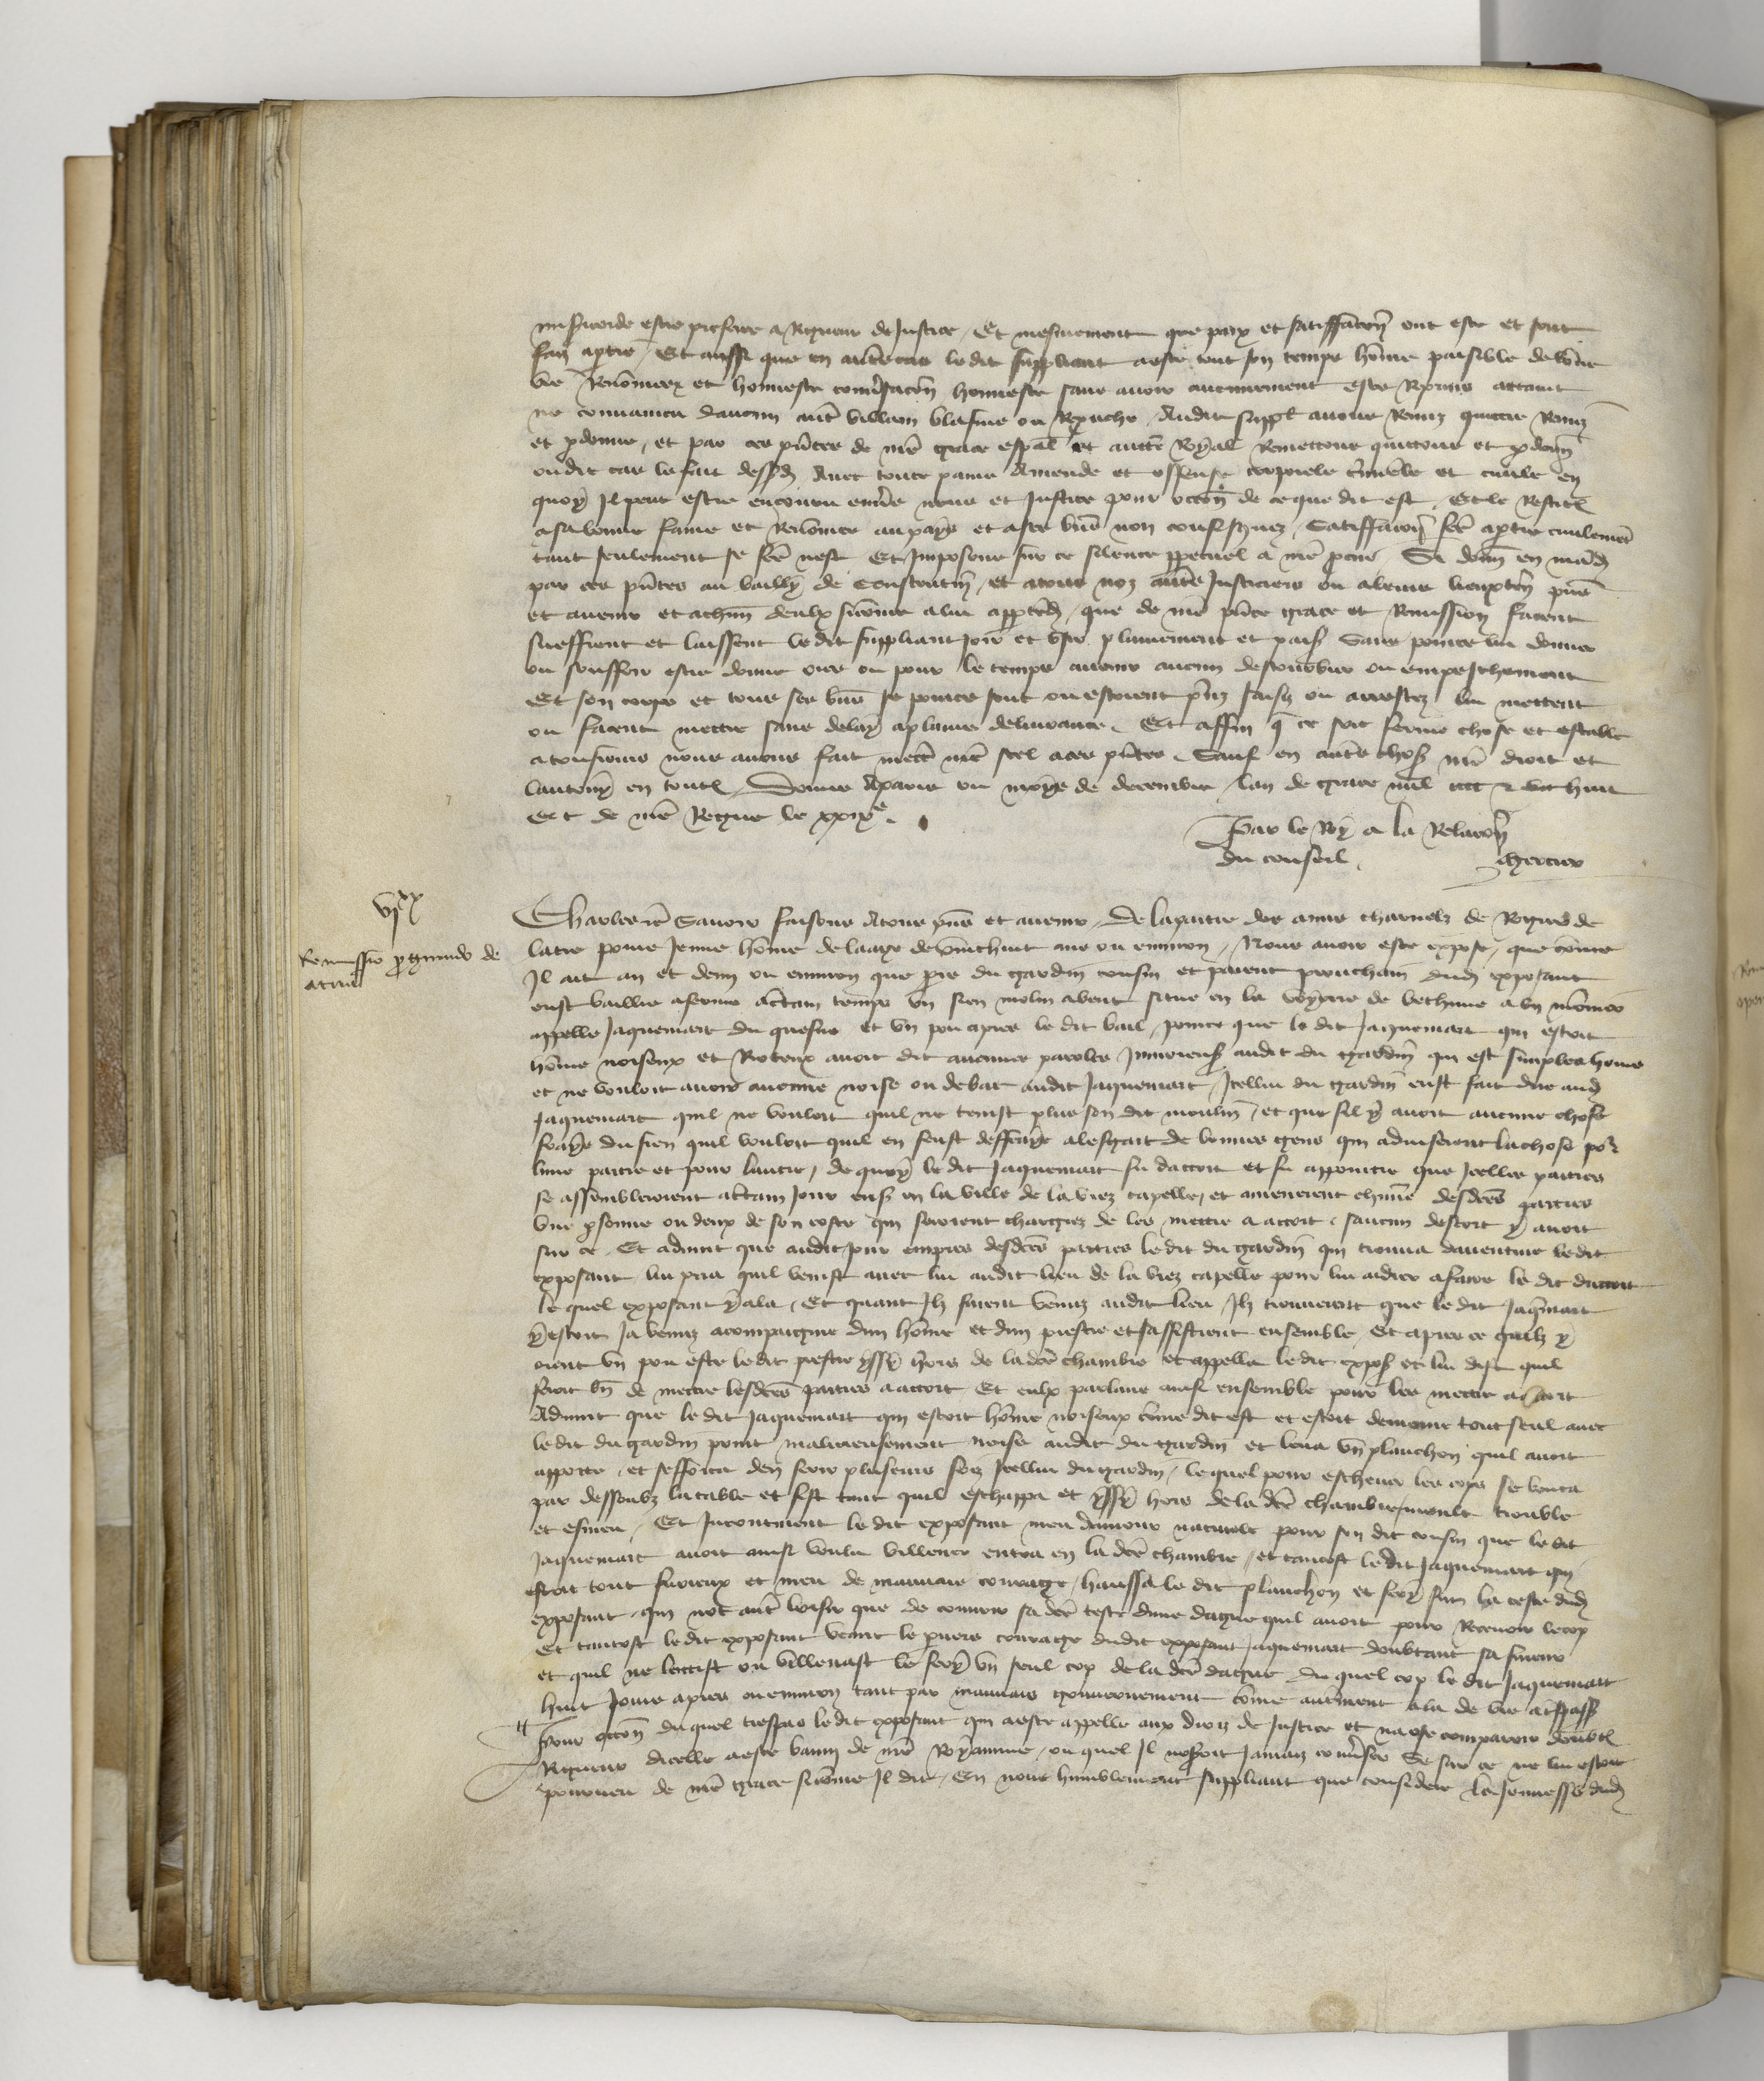 misericorde estre preferee a Rigueur de Justice Et mesmement que paix et satisfaccion ont este et sont
faiz a partie Et aussi que en autres cas le dit suppliant a este tout son temps homme paisible de bonne
vie Renommee et honneste conversacion honneste sans avoir aucunement este Reprins attaint
ne convaincu daucun autre villain blasme ou Reprouche Audit suppl avons Remis quictie Remis
et pardonne et par ces presentes de nostre grace especial et auctorite Royal Remettons quictons et pardonnons
ou dit cas le fait dessusd Avec toute paine Amende et offense corporele criminele et civile en
quoy Il peut estre encouru envers nous et Justice pour occasion de ce que dit est Et le Restit
a sa bonne fame et Renommee au pays et a ses biens non confisquez Satisfaccion fcte a partie civilement
tant seulement se fcte nest Et Imposons sur ce silence perpetuel a nostre procureur Si donnons en mand
par ces presentes au bailly de Constentin et a tous noz autres Justiciers ou a leurs lieuxten presens
et avenir et a chacun deulx si comme a lui appartend que de nostre presente grace et Remission facent
sueffrent et laissent le dit suppliant joir et user plainement et paisiblement Sanz pour ce lui donner
ou souffrir estre donne ores ou pour le temps avenir aucun destourbier ou empeschement
Et son corps et tous ses biens se pour ce sont ou estoient prins saisiz ou arrestez lui mettent
ou facent mettre sans delay a plaine delivrance Et affin que ce soit ferme chose et estable
a tousiours nous avons fait mettre nostre scel a ces presentes Sauf en autres choses nostre droit et
lautruy en toutes Donne A paris ou moys de decembre lan de grace mil cccc et huit
Et de nostre Regne le xxixe
Par le Roy a la Relacion
du conseil Mercier
vixx
Remissio pro guindo de
atrio
Charles etc Savoir faisons A tous presens et avenir De la partie des amis charnelz de
latre povre Jeune homme de laage de vint huit ans ou environ Nous avoir este expose que comme
Il ait an et demi ou environ que pierre du gardin cousin et parent prouchain dud exposant
eust baillie a ferme a certain temps un sien molin a vent situe en la de bethune a un nomme
appelle Jaquemart du quesne et un pou apres le dit bail pource que le dit Jaquemart qui estoit
homme noiseux et Rioteux avoit dit aucunes paroles Injurieuses audit du gardin qui est simples homs
et ne vouloit avoir aucune noise ou debat audit Jaquemart Icellui du gardin eust fait dire aud
Jaquemart quil ne vouloit quil ne tenist plus son dit moulin et que sil y avoit aucune chose
fraye du sien quil vouloit quil en feust deffraye a lesgart de bonnes gens qui adviseroient la chose pour
lune partie et pour lautre de quoy le dit Jaquemart fu daccort et fu appointie que Icelles parties
se assembleroient a certain Jour ens en la ville de la viez capelle et ameneroient chacune desdictes parties
une personne ou deux de son coste qui seroient chargiez de les mettre a accort saucun descort y avoit
sur ce Et advint que audit Jour empris desdictes parties le dit du gardin qui trouva daventure le dit
exposant lui pria quil venist avec lui audit lieu de la viez capelle pour lui aidier a faire le dit daccort
le quel exposant y ala Et quant Ilz furent venuz audit lieu Ilz trouverent que le dit Jaqmart
y estoit Ja venuz acompaigne dun homme et dun prestre et sassistrent ensemble Et apres ce quilz y
orent un pou este le dit prestre yssy hors de la dicte chambre et appella le dit expos et lui dist quil
seroit bon de mettre lesdictes parties a accort Et eulx parlans ainsi ensemble pour les mettre a accort
Advint que le dit Jaquemart qui estoit homme noiseux comme dit est et estoit demoure tout seul avec
le dit du gardin prinst malicieusement noise audit du gardin et leva un planchon quil avoit
apporte et sefforca den ferir plusieurs foiz Icellui du gardin lequel pour eschever les cops se bouta
par dessoubz la table et fist tant quil eschappa et yssy hors de la dicte chambre moult trouble
et esmeu Et Incontinent le dit exposant meu damour naturele pour son dit cousin que le dit
Jaquemart avoit ainsi voulu villener entra en la dicte chambre et tantost le dit Jaquemart qui
estoit tout furieux et meu de mauvais courage haussa le dit planchon et fery sur la teste dud
exposant qui not autre loisir que de couvrir sa dicte teste dune dague quil avoit pour Recevoir le cop
Et tantost le dit exposant veant le pervers courage dudit exposant Jaquemart doubtant sa fureur
et quil ne loccist ou villenast le fery un seul cop de la dicte dague du quel cop le dit Jaquemart
huit Jours apres ou environ tant par mauvais gouvernement comme autrement ala de vie a trespass
Pour occasion duquel trespas le dit exposant qui a este appelle aux droiz de Justice et na ose comparoir doubt
Rigueur dicelle a este banni de nostre Royaume ou quel Il noseroit Jamaiz converser Se sur ce ne lui estoit
pourveu de nostre grace si comme Il dit En nous humblement suppliant que consideree la Jeunesse dud